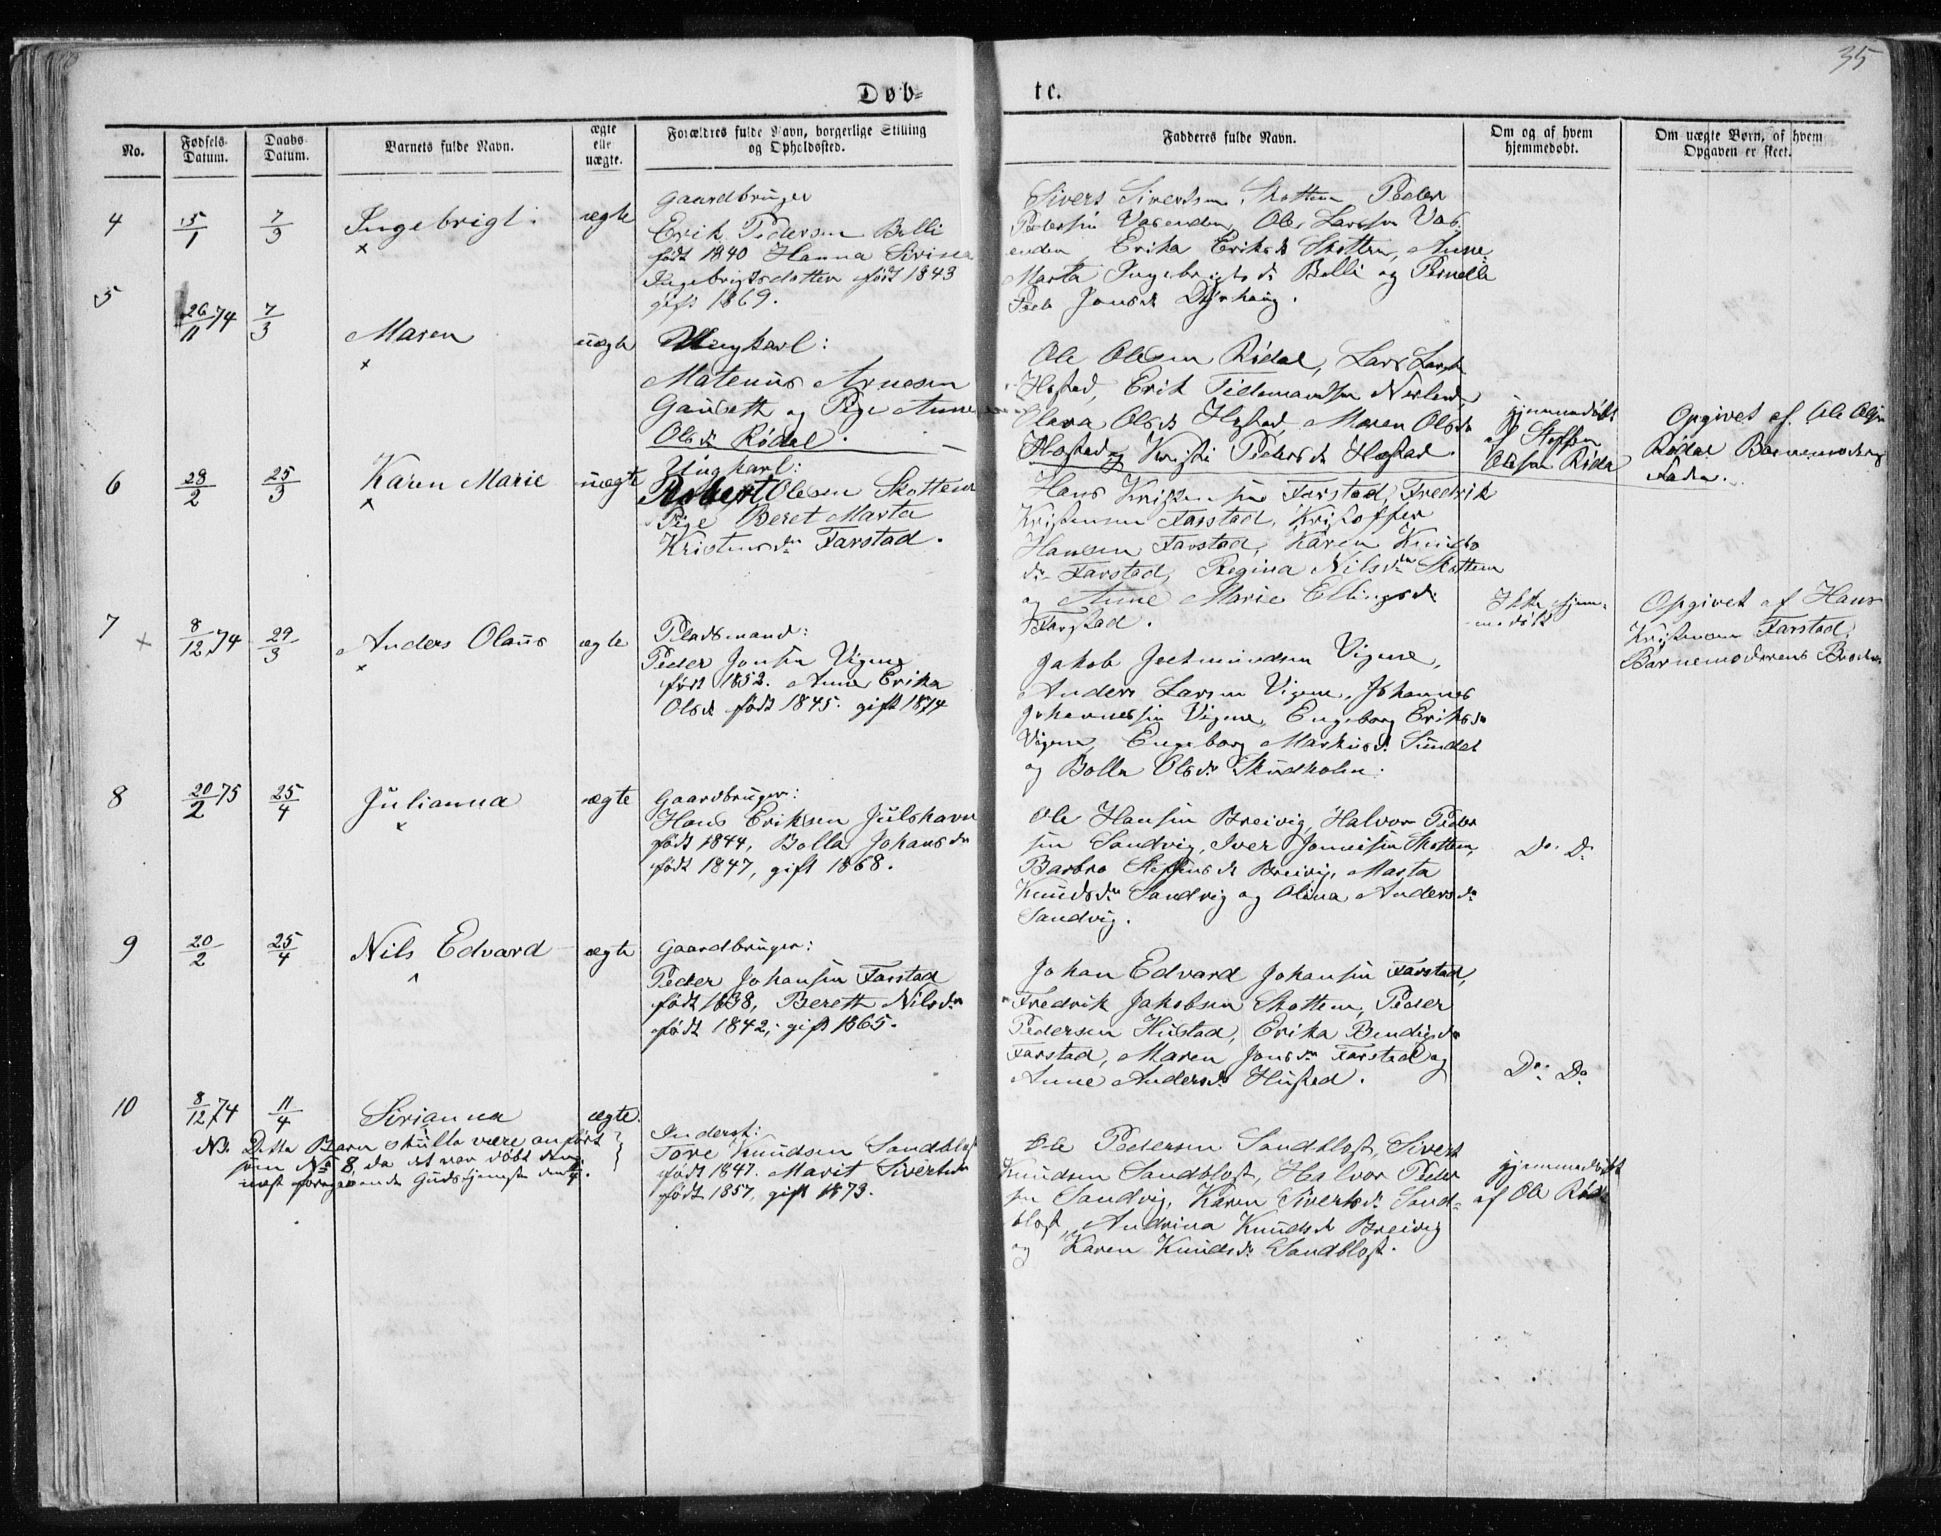 35
Døb-
te.
No.
Fødsels-
Datum.
Daabs-
Datum.
Barnets fulde Navn.
ægte
elle
uægte.
Forældres fulde Navn, borgerlige Stilling
og Opholdssted.
Fadderes fulde Navn.
Om og af hvem
hjemmedøbt.
Om uægte Børn, af hvem
Opgaven er skeet.
4
5/1
7/3
Ingebrigt.
ægte
Gaardbruger
Erik Pedersen Bolli
født 1840 Hanna Sirina
Ingebrigtsdotter født 1843
gift 1869.
Sivert Sivertsen Skottem Peder
Pedersen Vasenden, Ole Larssen Vas-
enden, Erika Eriksdr Skottem, Anne
Marta Ingebrigtsdr Bolli og Pernella
Jonsdr
5
26/11 74
7/3
Maren
uægte
Ungkarl:
Mateus Arnesen
Gauseth og Pige Anne
Olsdr Rødal.
Ole Olesen Rødal, Lars Larsen
Hostad, Erik Tildemandsen Nerland,
Olava Olsdr Hostad, Maren Olsdr
Hostad og Kristi Pedersdr Hostad
Hjemmedøbt
af Steffen
Olesen Rødal
Opgivet af Ole Olsen
Rødal Barnemoderens
Fader.
6
28/2
25/3
Karen Marie
uægte
Ungkarl:
Robert Olesen Skottem
Pige Beret Marta
Kristensdr Farstad.
Hans Kristensen Farstad, Fredrik
Kristensen Farstad, Kristoffer
Hansen Farstad, Karen Knuds
dr Farstad, Regina Nilsdr Skottem
og Anne Marie Ellingsdr
Farstad.
Ikke hjem-
medøbt
Opgivet af Hans
Kristensen Farstad,
Barnemoderens Broder
7
8/12 74
29/3
Anders Olaus
ægte
Pladsmand:
Peder Jonsen Vigene
født 1852. Anne Erika
Olsdr født 1845. gift 1874
Jakob Jetmundsen Vigene,
Anders Larsen Vigene, Johannes
Johannessen Vigene, Engeborg Eriksdr
Vigene, Engeborg Markusdr Sundet
og Bolla Olsdr Skudholm.
8
20/2 75
25/4
Julianna
ægte
Gaardbruger:
Hans Eriksen Julshavn
født 1844, Bolla Johansdr
født 1847, gift 1868.
Ole Hansen Breivig, Halvor Peder
sen Sandvig, Iver Jonnesen Skottem,
Barbro Steffensdr Breivig, Marta
Knudsdr Sandvig og Olina Andersdr
Sandvig.
Do Do
9
20/2
25/4
Nils Edvard
ægte
Gaardbruger:
Peder Johansen Farstad
født 1838, Bereth Nilsdr
født 1842, gift 1865.
Johan Edvard Johansen Farstad,
Fredrik Jakobsen Skottem, Peder
Pedersen Hustad, Erika Bendigsdr
Farstad, Maren Jonsdr Farstad og
Anne Andersdr Hustad.
Do Do
10
8/12 74
11/4
Sirianna
ægte
NB. Dette Barn skulle være anført
som No 8, da det var døbt den
næst foregaaende Gudstjeneste
Inderst:
Tore Knudsen Sandblost
født 1847. Marit Sivertsdr
født 1857, gift 1873.
Ole Pedersen Sandblost, Sivert
Knudsen Sandblost, Halvor Peder
sen Sandvig, Karen Sivertsdr Sand-
blost, Andrina Knudsdr Breivig
og Karen Knudsdr Sandblost.
Hjemmedøbt
af Ole Rødal